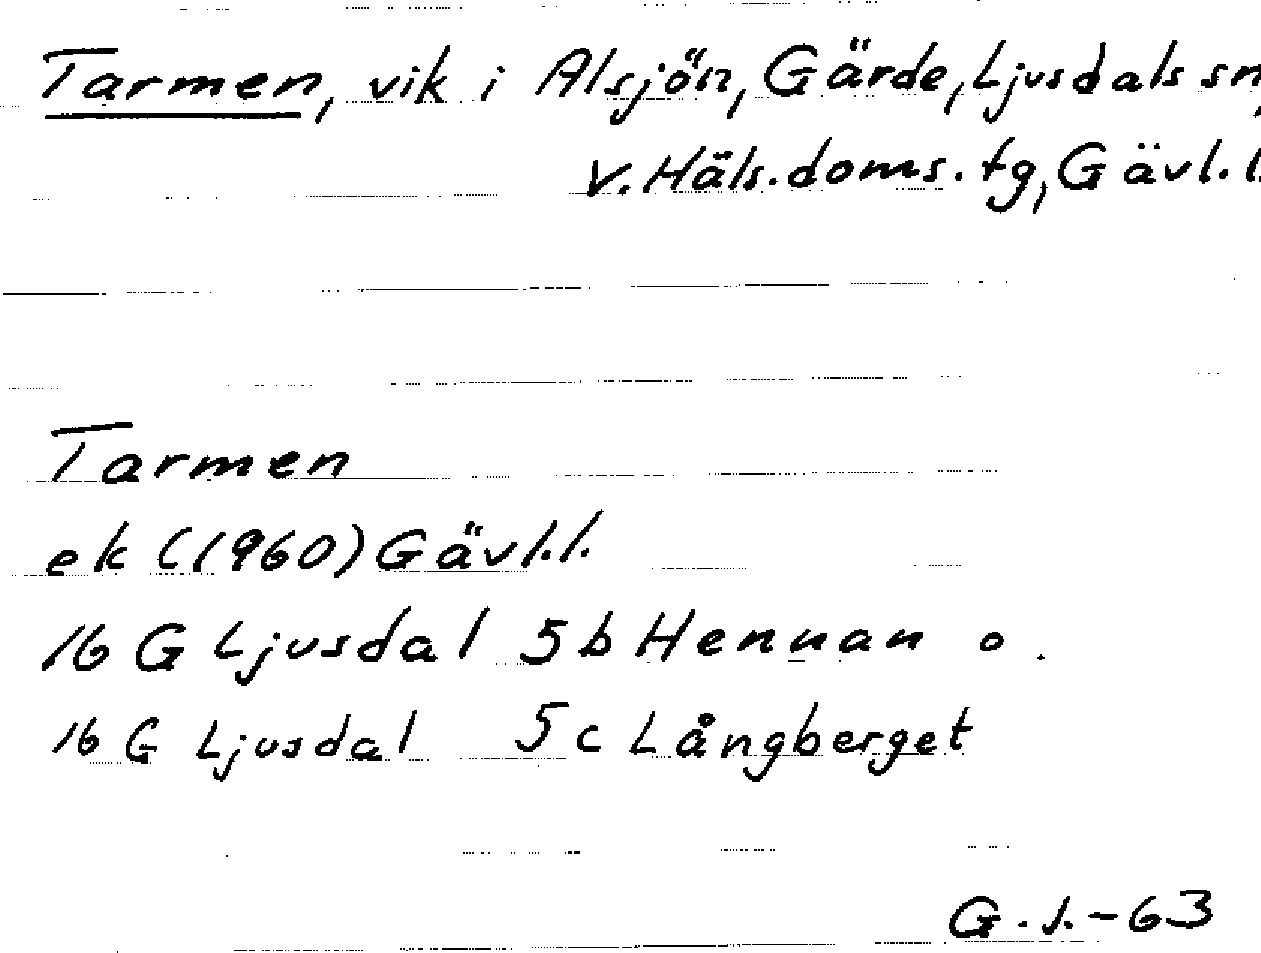 Tarmen, vik i Alsjön, Gärde, Ljusdals sn,
V. Häls. doms. tg, Gävl. l.
Tarmen
ek (1960) Gävl. l.
16 G Ljusdal 5 b Hennan o.
16 G Ljusdal 5 c Långberget
G. J. - 63